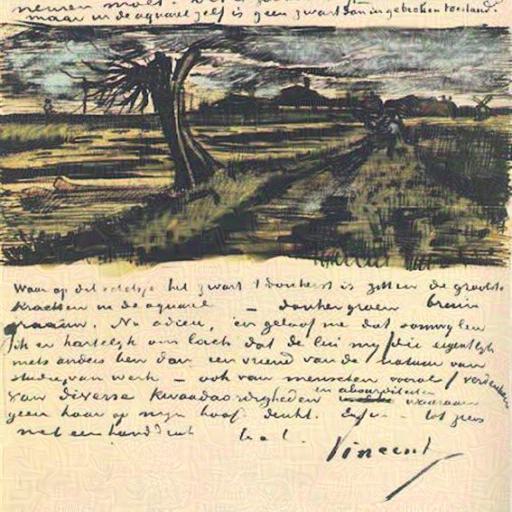 nemen moet.
maar in de aquarel zelf is geen zwart dan in gebroken toestand.
Waar op dit schetsje het zwart 't donkerst is zitten de grootste
krachten in de aquarel — donkergroen bruin
graauw. Nu adieu, en geloof me dat
ik er hartelijk om lach dat de lui my die eigentlyk
niets anders ben dan een vriend van de natuur van
studie van werk — ook van menschen vooral / verdenken
van diverse kwaadaardigheden en absurditeiten waaraan
geen haar op myn hoofd denkt. Enfin — tot ziens
met een handdruk t. à t.
Vincent